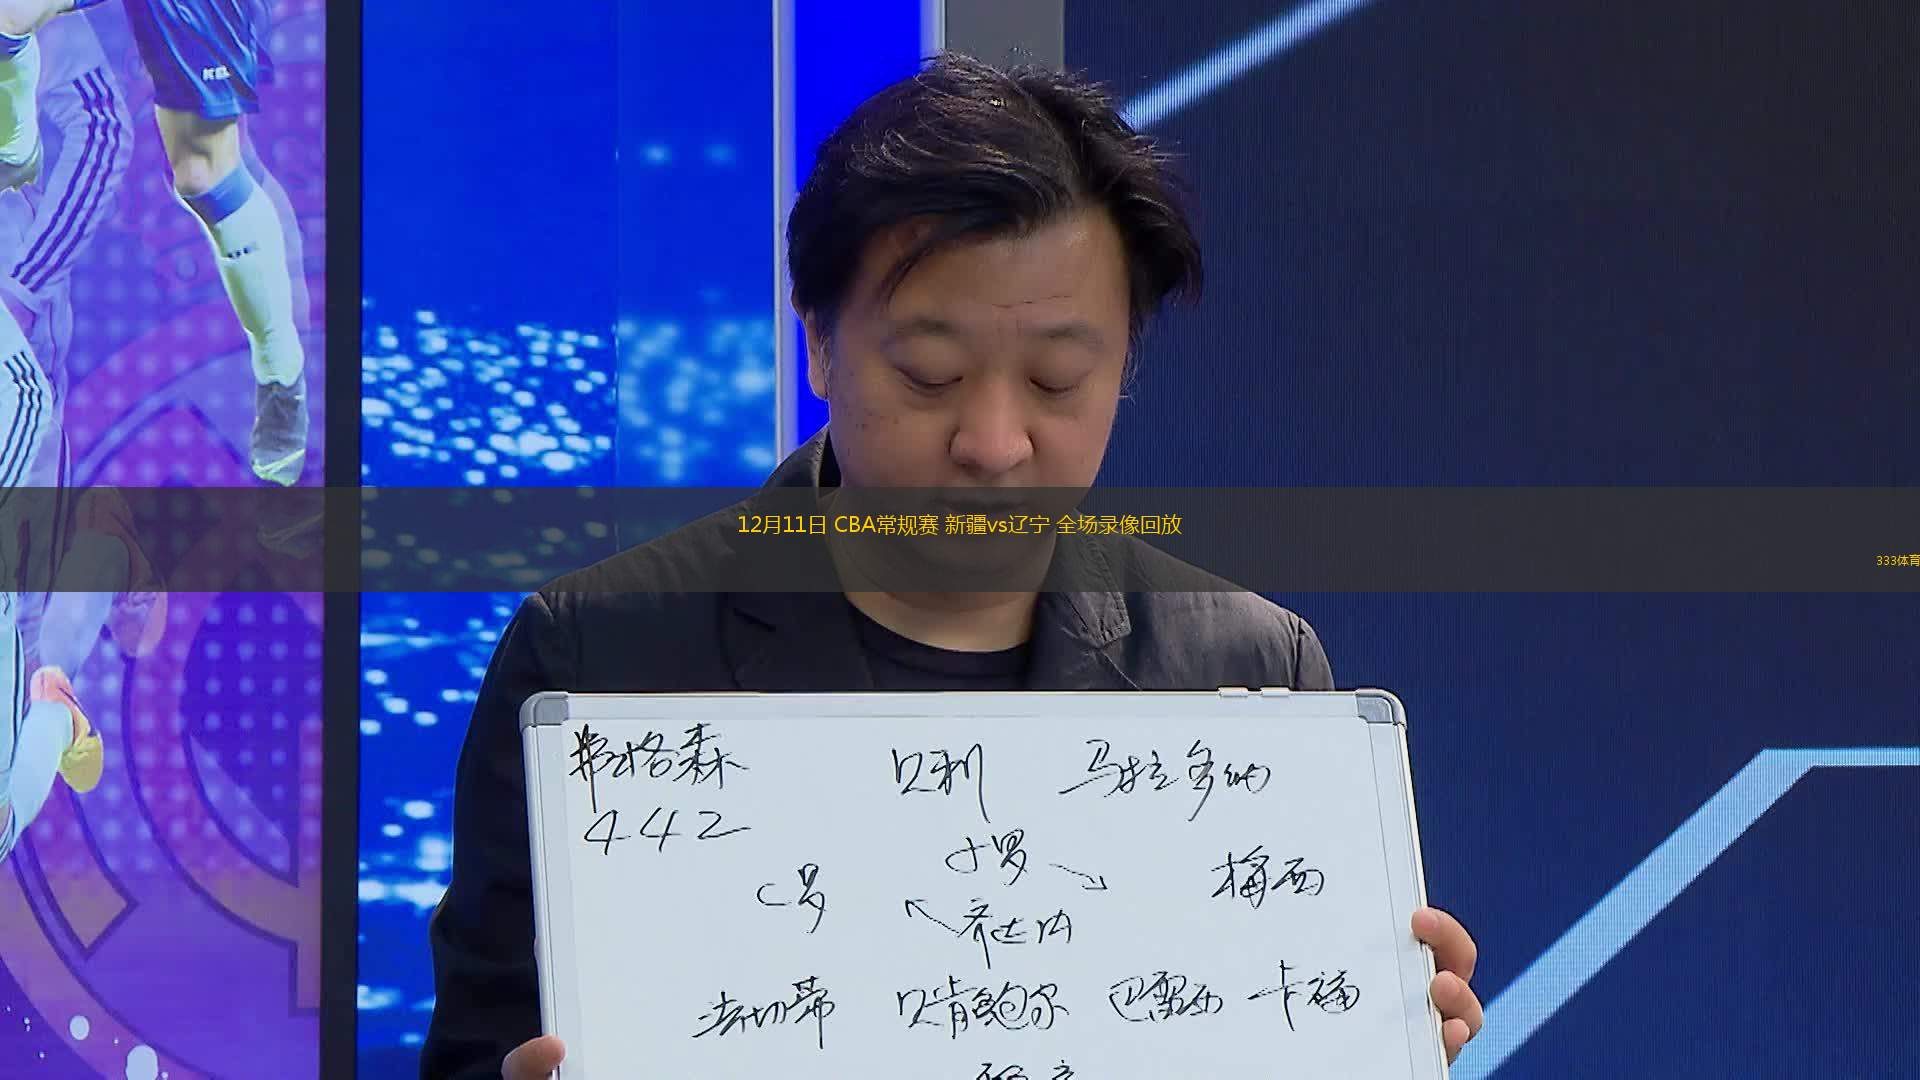 12月11日 CBA常规赛 新疆vs辽宁 全场录像回放
333体育
弗格森 贝利 马拉多纳
442
小罗
C罗 梅西
齐达内
法切蒂 贝肯鲍尔 巴雷西 卡福